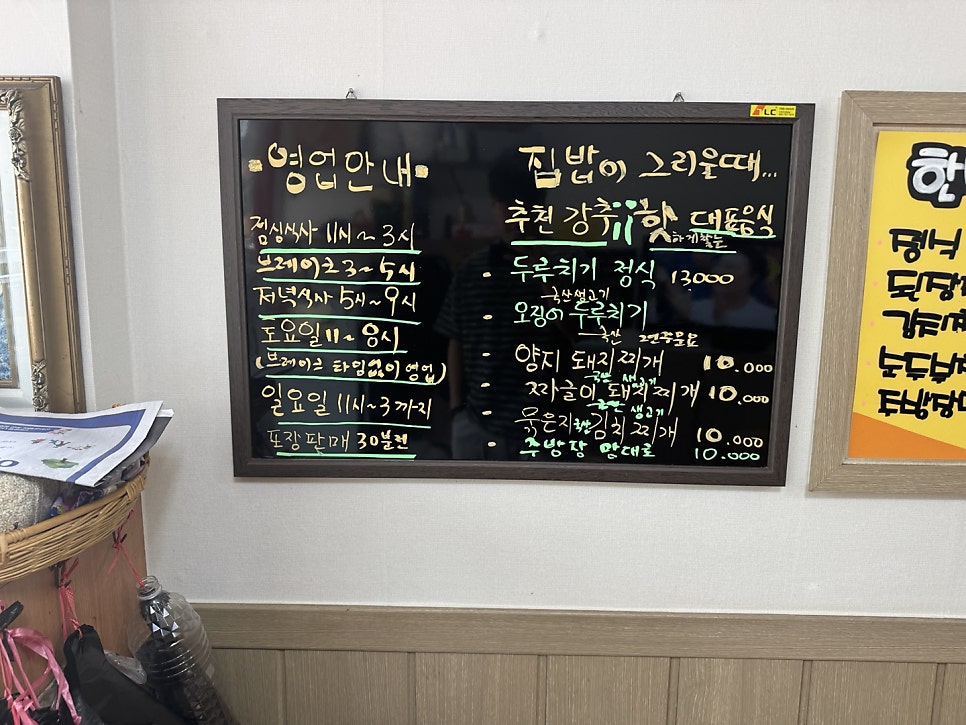 영업안내
점심식사 11시~3시
브레이크 3~5시
저녁식사 5시~9시
토요일 11~8시
(브레이크 타임없이 영업)
일요일 11시~3까지
포장판매 30분전
집밥이 그리울때...
추천 강추!! 핫하게 찾는 대표음식
· 두루치기 정식 13000
국산생고기
· 오징어 두루치기
국산 2인주문요
· 양지 돼지찌개 10.000
국산 생고기
· 짜글이 돼지찌개 10.000
국산 생고기
· 묵은지 김치찌개 10.000
· 주방장 맘대로 10.000
LC